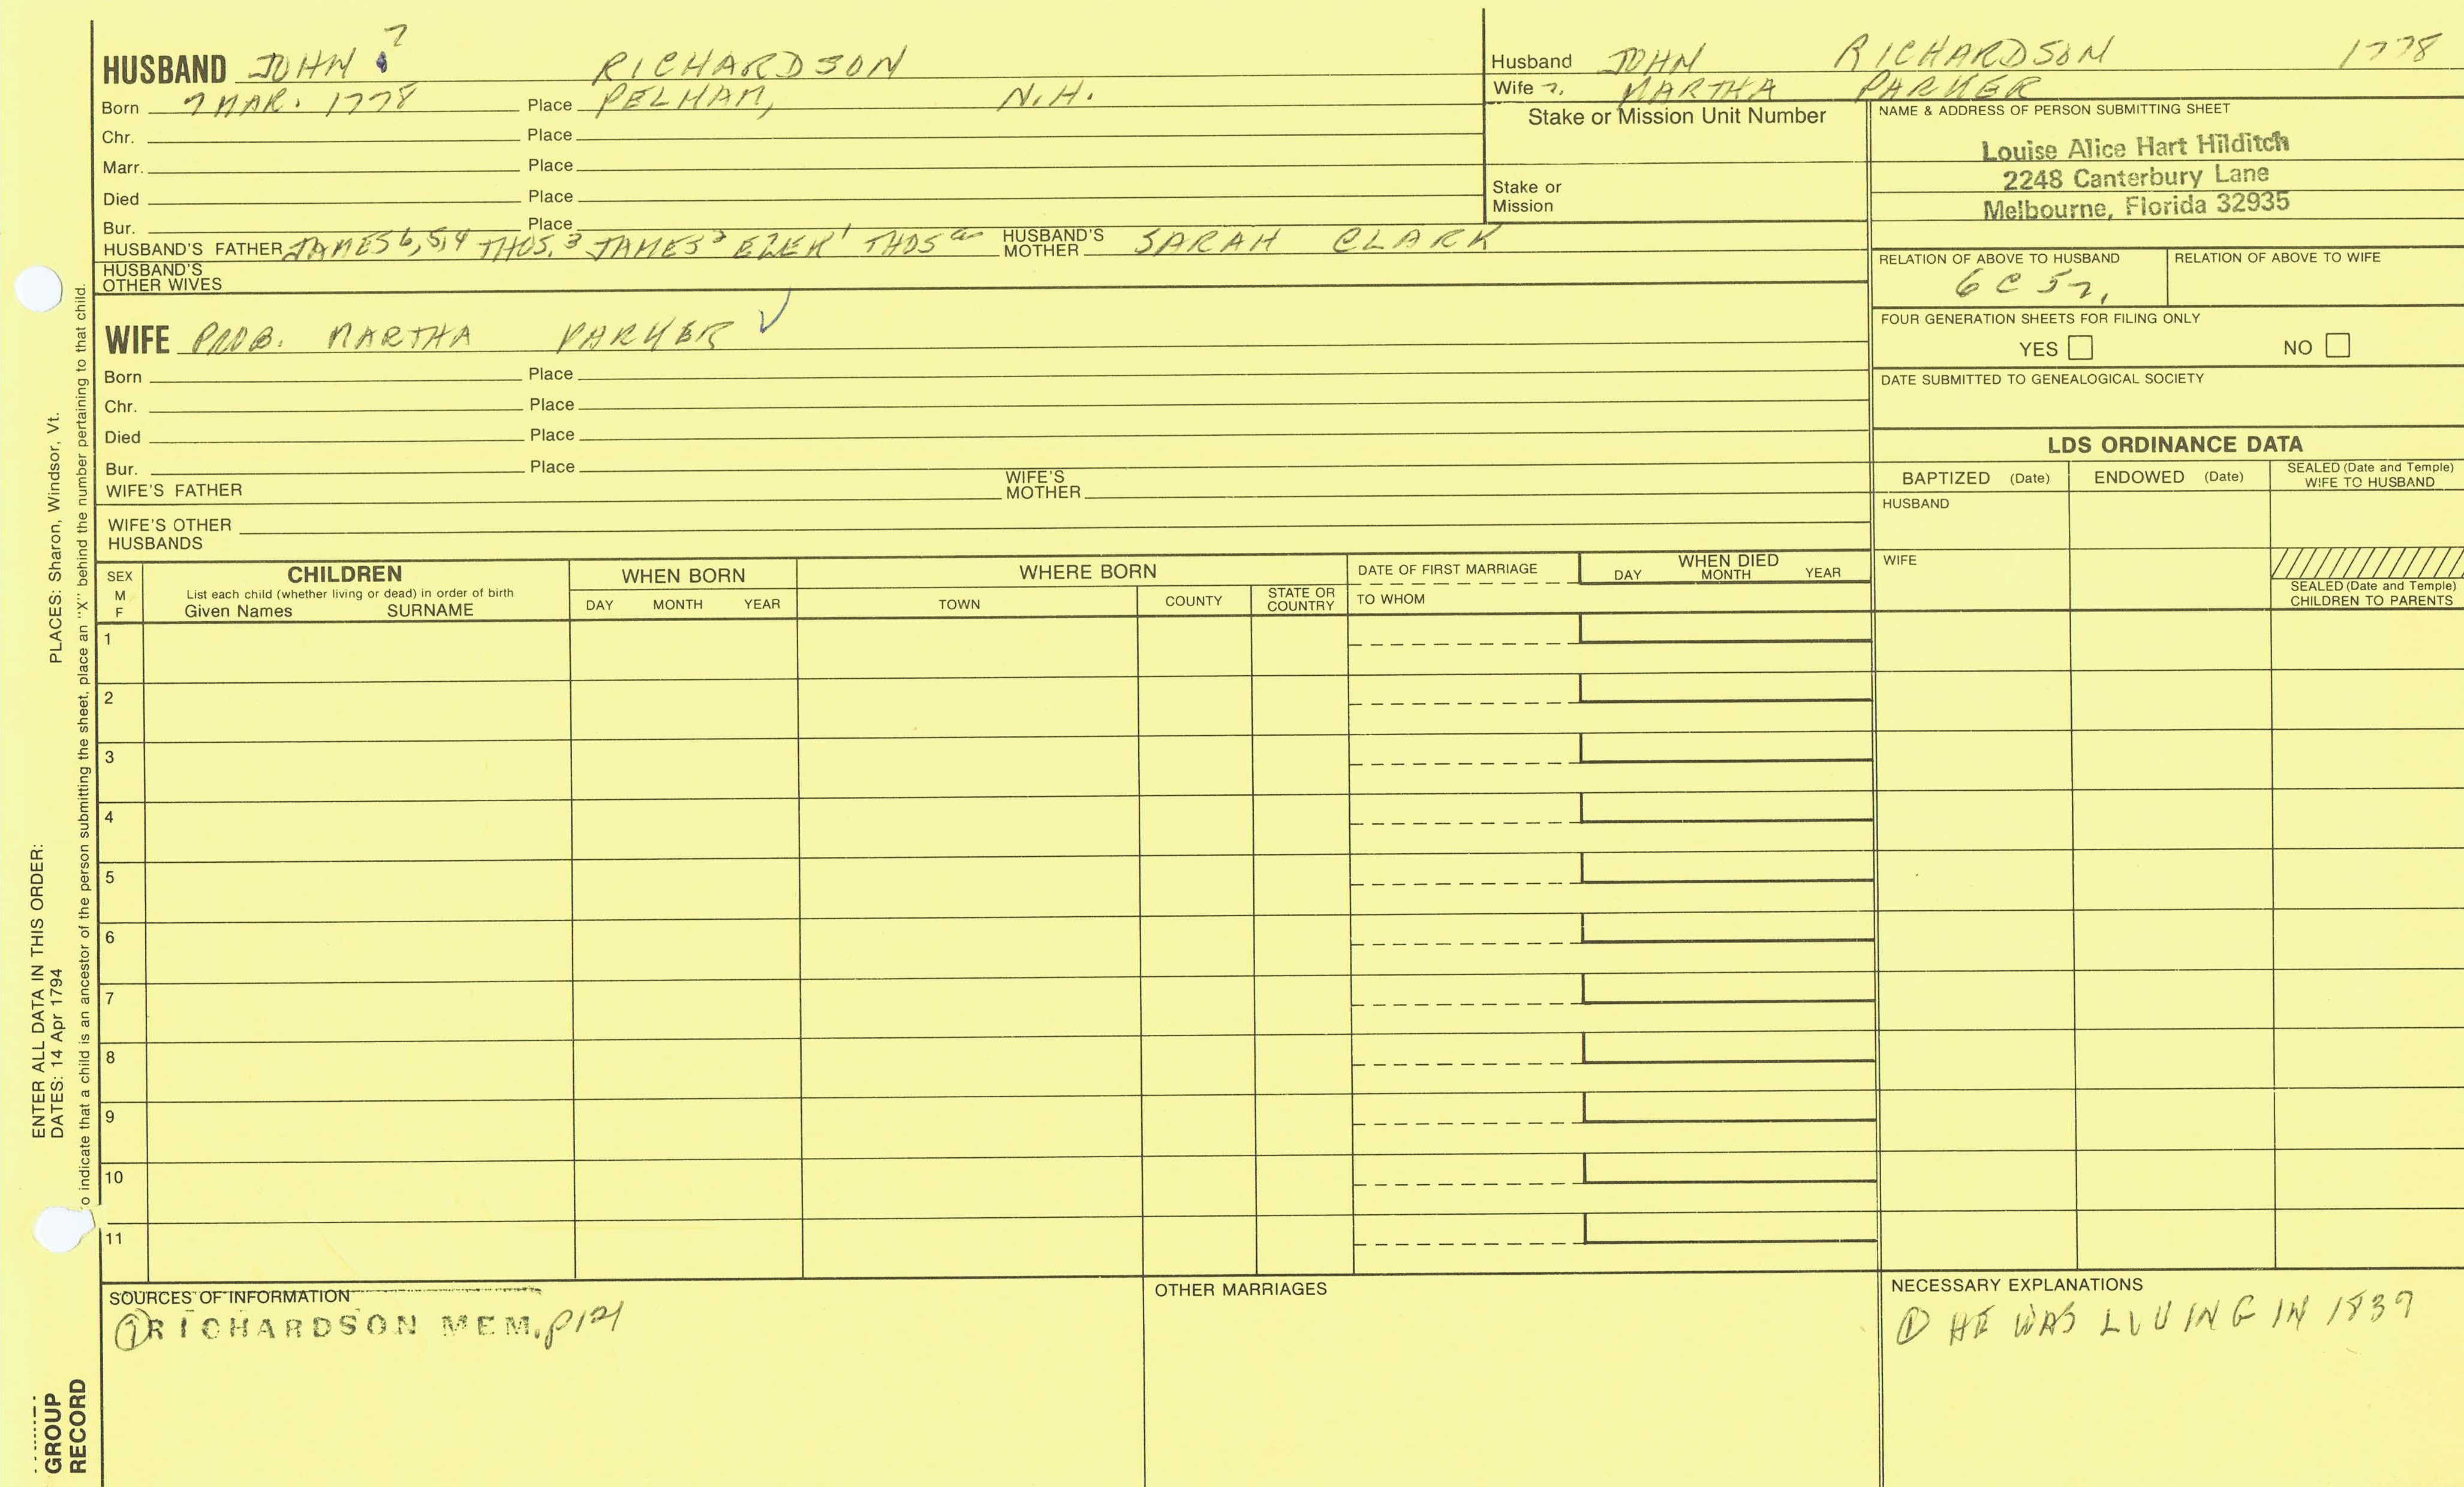 HUSBAND JOHN 7 RICHARDSON
Born 7 MAR. 1778 Place PELHAM, N.H.
Chr. Place
Marr. Place
Died Place
Bur. Place
HUSBAND'S FATHER JAMES 6,5,4 THOS.3 JAMES EZEK1 THOS HUSBAND'S MOTHER SARAH CLARK
HUSBAND'S OTHER WIVES
WIFE PROB. MARTHA PARKER
Born Place
Chr. Place
Died Place
Bur. Place
WIFE'S FATHER WIFE'S MOTHER
WIFE'S OTHER HUSBANDS
Husband JOHN RICHARDSON 1778
Wife MARTHA PARKER
Stake or Mission Unit Number
Stake or Mission
NAME & ADDRESS OF PERSON SUBMITTING SHEET
Louise Alice Hart Hilditch
2248 Canterbury Lane
Melbourne, Florida 32935
RELATION OF ABOVE TO HUSBAND RELATION OF ABOVE TO WIFE
6 C 5
FOUR GENERATION SHEETS FOR FILING ONLY
YES NO
DATE SUBMITTED TO GENEALOGICAL SOCIETY
LDS ORDINANCE DATA
BAPTIZED (Date) ENDOWED (Date) SEALED (Date and Temple) WIFE TO HUSBAND
HUSBAND
WIFE
SEALED (Date and Temple) CHILDREN TO PARENTS
SEX M F
CHILDREN
List each child (whether living or dead) in order of birth
Given Names SURNAME
WHEN BORN
DAY MONTH YEAR
WHERE BORN
TOWN COUNTY STATE OR COUNTRY
DATE OF FIRST MARRIAGE
TO WHOM
WHEN DIED
DAY MONTH YEAR
1
2
3
4
5
6
7
8
9
10
11
SOURCES OF INFORMATION
① RICHARDSON MEM. p121
OTHER MARRIAGES
NECESSARY EXPLANATIONS
① HE WAS LIVING IN 1839
ENTER ALL DATA IN THIS ORDER:
DATES: 14 Apr 1794 PLACES: Sharon, Windsor, Vt.
o indicate that a child is an ancestor of the person submitting the sheet, place an "X" behind the number pertaining to that child.
GROUP
RECORD